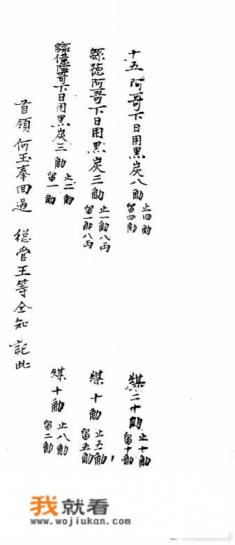 十五阿哥下日用黑炭八觔 止四觔 留四觔 煤二十觔 止十觔 留十觔
緜德阿哥下日用黑炭三觔 止一觔八両 留一觔八両 煤十觔 止五觔 留五觔
緜億阿哥下日用黑炭三觔 止二觔 留一觔 煤十觔 止八觔 留二觔
首領何玉奉回過 總管王等全知 記此
我就看
www.wojiukan.com